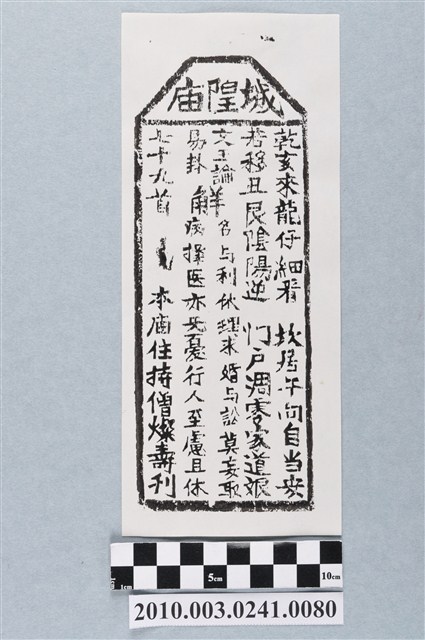 城隍庙
乾亥來龍仔細看 坎居午向自当安
若移丑艮陰陽逆 门户凋零家道艰
文王論 名与利依理求 婚与訟莫妄取
易卦 解 病擇医亦无憂行人至慮且休
七十九首 本庙住持僧燦壽刊
1cm 5cm 10cm
2010.003.0241.0080